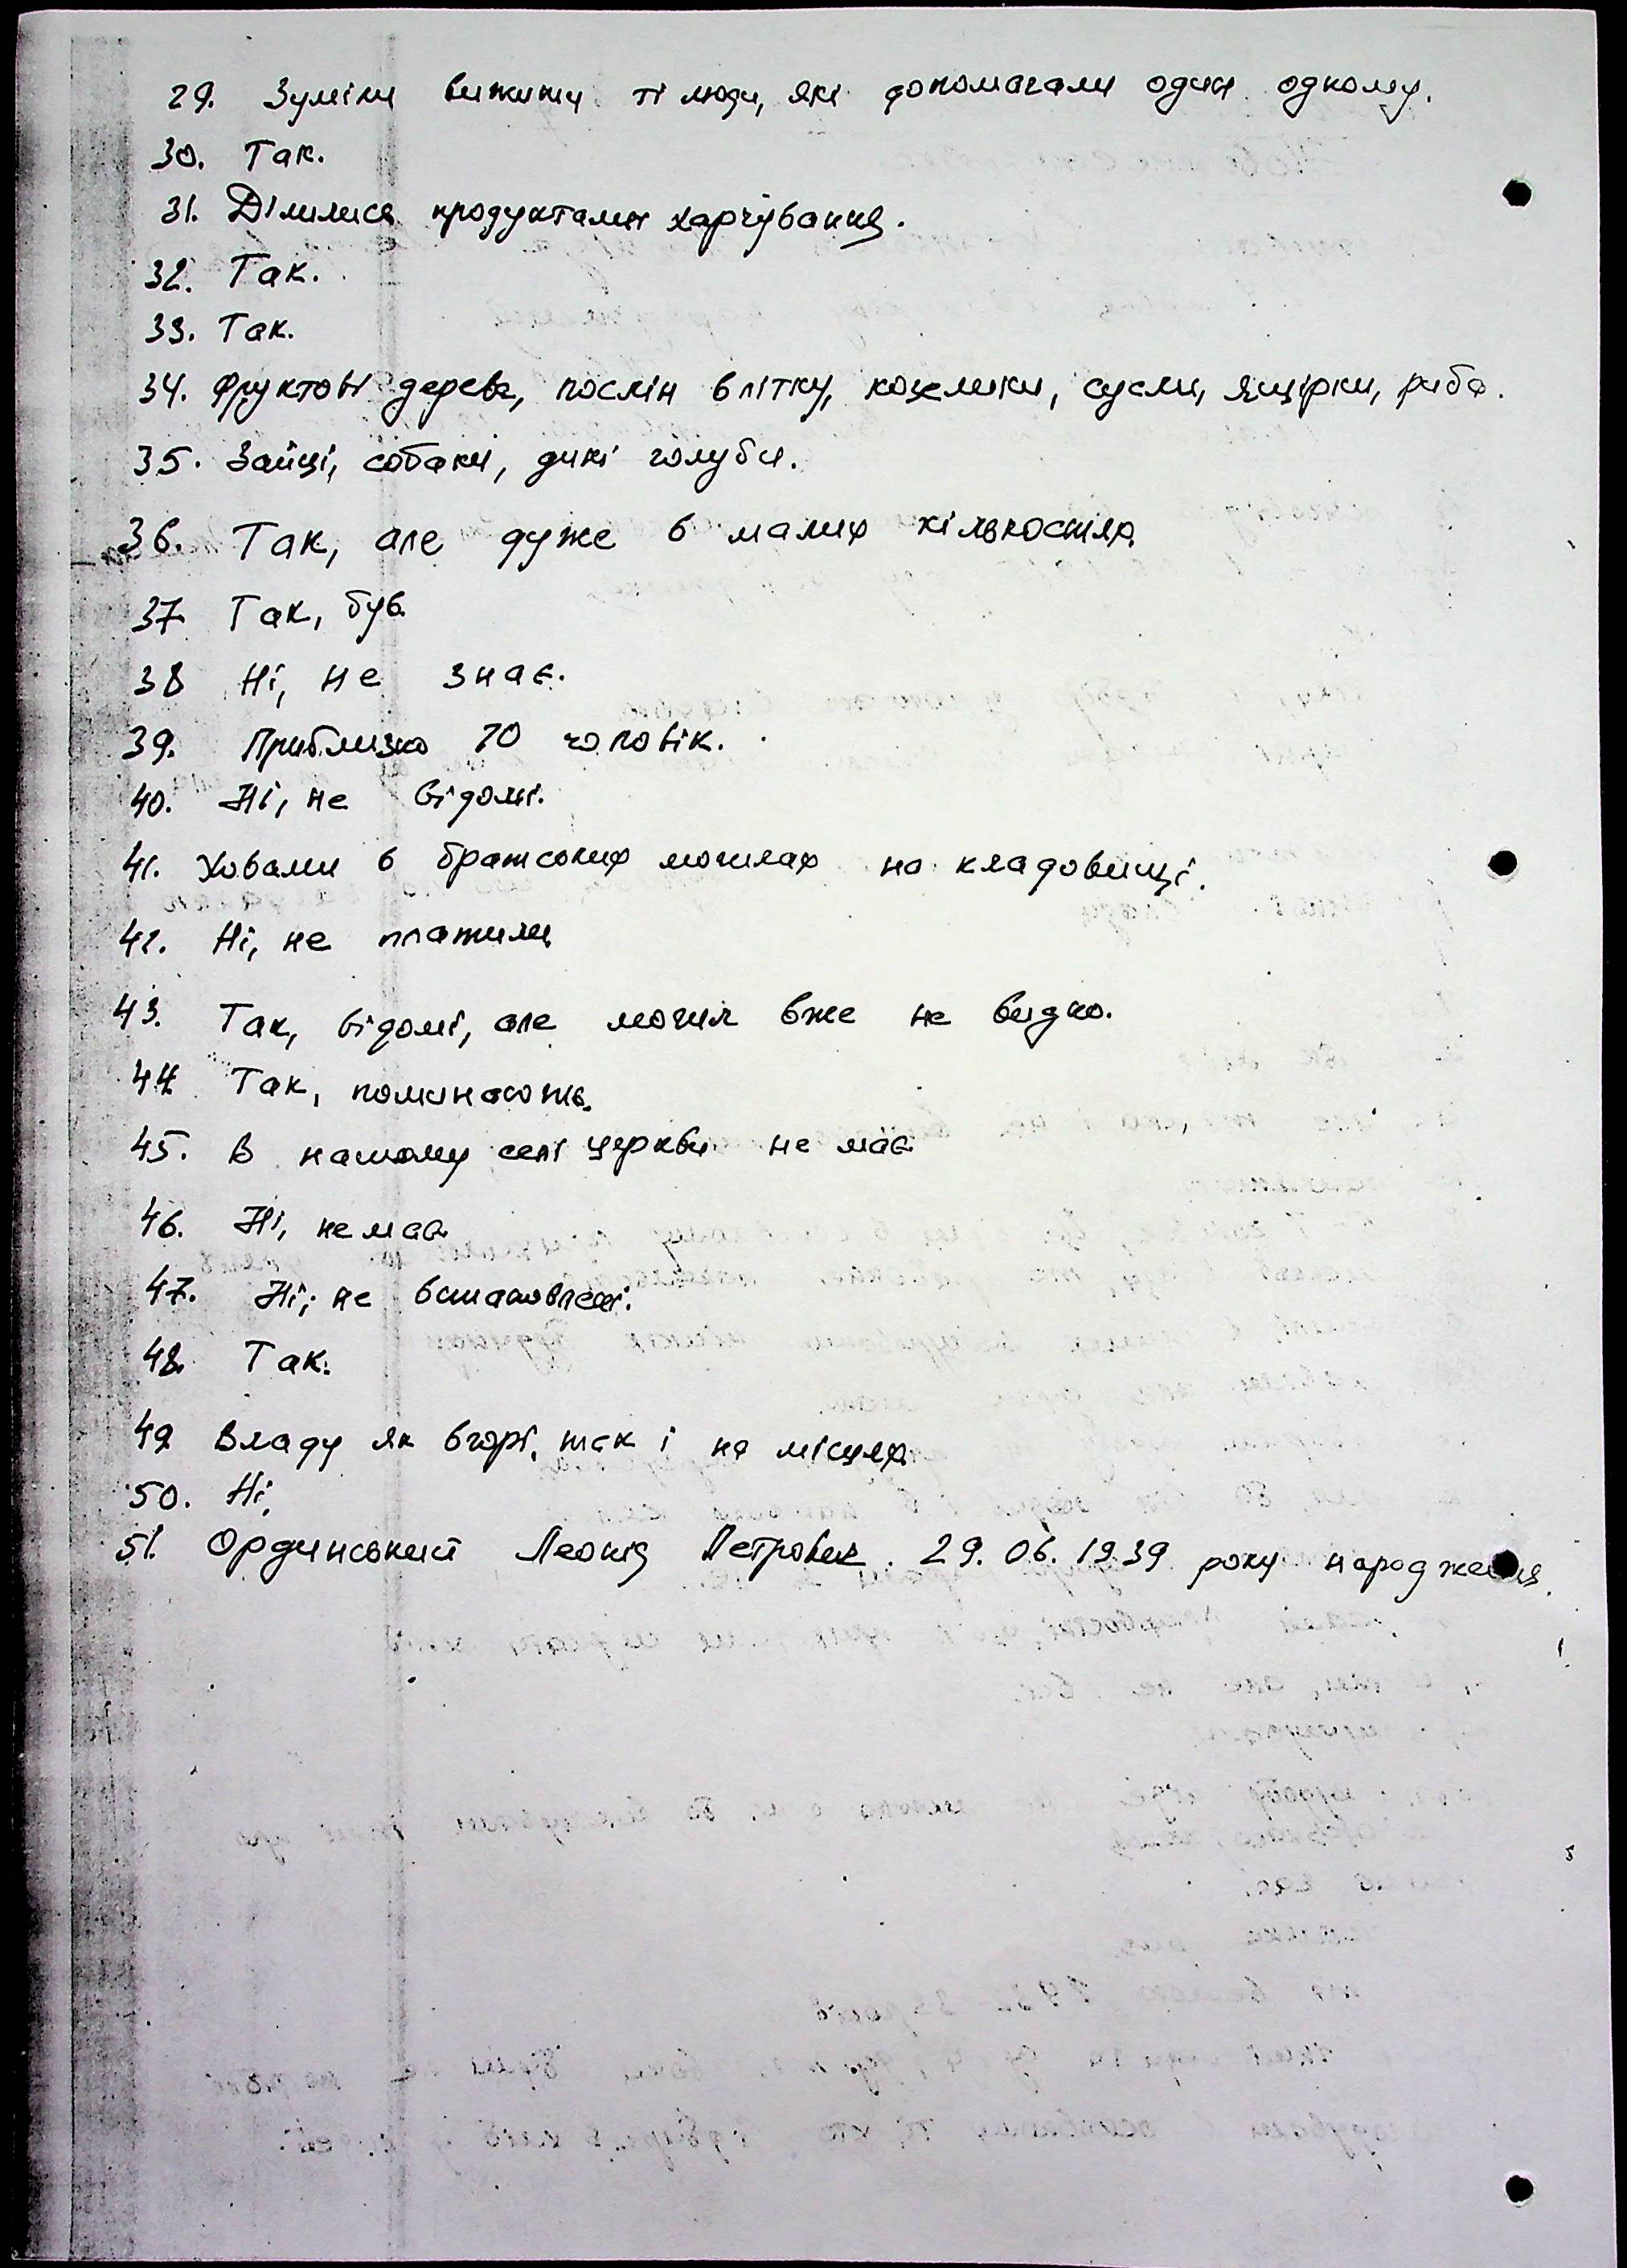 29. Зуміли вижити ті люди, які допомагали один одному.
30. Так.
31. Ділилися продуктами харчування.
32. Так.
33. Так.
34. Фруктові дерева, послін влітку, кожелики, сусли, ящірки, риба.
35. Зайці, собаки, дикі голуби.
36. Так, але дуже в малих кількостях.
37 Так, був.
38 Ні, не знає.
39. Приблизно 70 чоловік.
40. Ні, не відомі.
41. Ховали в братських могилах на кладовищі.
42. Ні, не платили
43. Так, відомі, але могил вже не видно.
44 Так, поминають.
45. В нашому селі церкви не має
46. Ні, немає.
47. Ні, не встановлені.
48. Так.
49 Владу як вгорі, так і на місцях.
50. Ні,
51. Ординський Леонід Петрович. 29. 06. 1939 року народження.